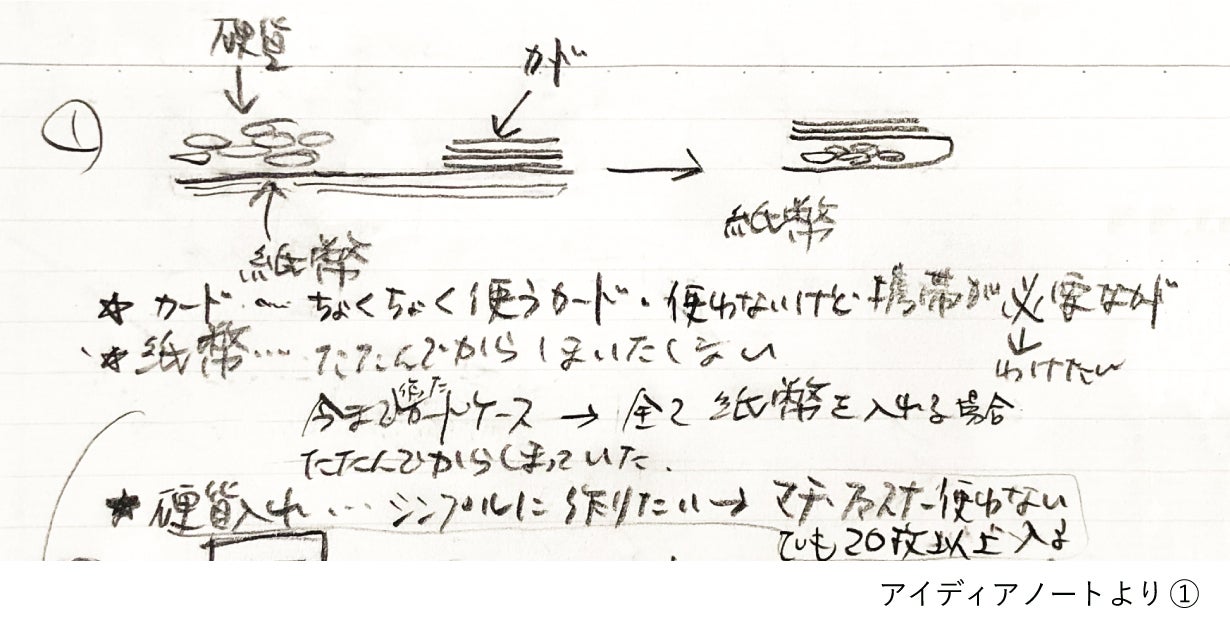 硬貨
カード
①
紙幣
紙幣
☆ カード… ちょくちょく使うカード・使わないけど携帯が必要なカード
わけたい
☆ 紙幣… たたんでからしまいたくない
今まで作ったカードケース → 全て紙幣を入れる場合
たたんでからしまっていた.
★ 硬貨入れ… シンプルに作りたい → マチ・ファスナー使わない
でも20枚以上入る
アイディアノートより①